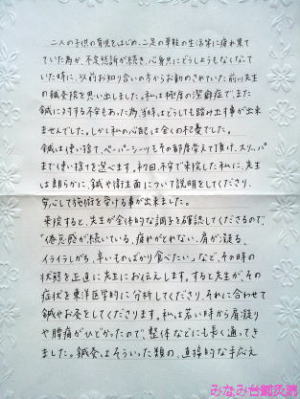 二人の子供の育児をはじめ、二足の草鞋の生活等に疲れ果て
ていた為か、不定愁訴が続き、心身共にどうしようもなくなって
いた時に、以前お知り合いの方からお勧めされていた前川先生
の鍼灸院を思い出しました。私は極度の潔癖症で、また
鍼に対する不安もあった為、当時はどうしても踏み出す事が出来
ませんでした。しかし私の心配は全くの杞憂でした。
鍼は使い捨て、ペーパーシーツもその都度替えて頂け、スリッパ
まで使い捨てを選べます。初回、不安で来院した私に、先生
は朗らかに、鍼や衛生面について説明をしてくださり、
安心して施術を受ける事が出来ました。
来院すると、先生が全体的な調子を確認してくださるので、
「倦怠感が続いている、疲れがとれない、肩が凝る、
イライラしがち、辛いものばかり食べたい」など、その時の
状態を正直に先生にお伝えします。すると先生が、その
症状を東洋医学的に分析してくださり、それに合わせて
鍼やお灸をしてくださります。私は若い時から肩凝り
や腰痛がひどかったので、整体などにも長く通ってき
ました。鍼灸はそういった類の、直接的な手応え
みなみ台鍼灸院